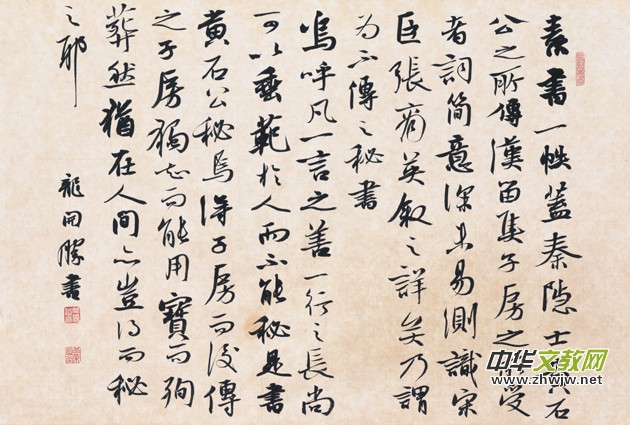 素書一帙蓋秦隐士黄石
公之所傳漢留侯子房之所受
者詞簡意深未易測識宋
臣張商英叙之詳矣乃謂
为不傳之秘書
嗚呼凡一言之善一行之長尚
可以垂範於人而不能秘是書
黄石公秘焉得子房而後傳
之子房獨知而能用寶而殉
葬然猶在人間亦豈得而秘
之耶
龍開勝書
中华文教网
www.zhwjw.net